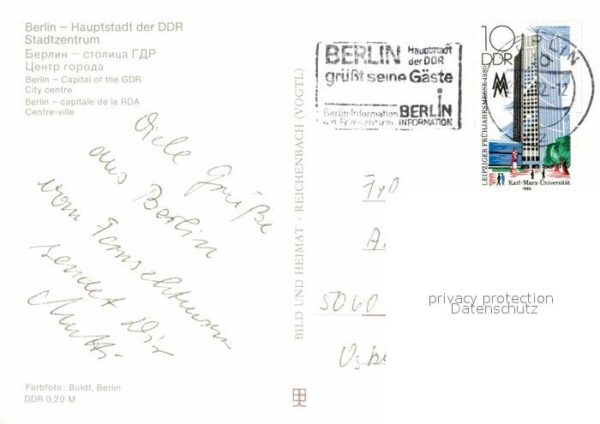 Berlin – Hauptstadt der DDR
Stadtzentrum
Берлин – столица ГДР
Центр города
Berlin – Capital of the GDR
City centre
Berlin – capitale de la RDA
Centre-ville
Viele Grüße
aus Berlin
vom Fernsehturm
sendet Dir
Mutti
Farbfoto: Boldt, Berlin
DDR 0,20 M
BILD UND HEIMAT · REICHENBACH (VOGTL)
BERLIN Hauptstadt
der DDR
grüßt seine Gäste
Berlin-Information BERLIN
am Fernsehturm INFORMATION
BERLIN
10
DDR
LEIPZIGER FRÜHJAHRSMESSE 1980
Karl-Marx-Universität
1980
5060
privacy protection
Datenschutz